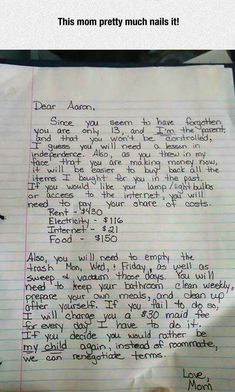 This mom pretty much nails it!
Dear Aaron,
Since you seem to have forgotten
you are only 13, and I'm the parent,
and that you won't be controlled,
I guess you will need a lesson in
independence. Also, as you threw in my
face that you are making money now,
it will be easier to buy back all the
items I bought for you in the past.
If you would like your lamp/lightbulbs
or access to the internet, you will
need to pay your share of costs.
Rent - $430
Electricity - $116
Internet - $21
Food - $150
Also, you will need to empty the
trash Mon, Wed, + Friday, as well as
sweep + vacuum those days. You will
need to keep your bathroom clean weekly,
prepare your own meals, and clean up
after yourself. If you fail to do so,
I will charge you a $30 maid fee
for every day I have to do it.
If you decide you would rather be
my child again, instead of roommate,
we can renegotiate terms.
Love,
Mom